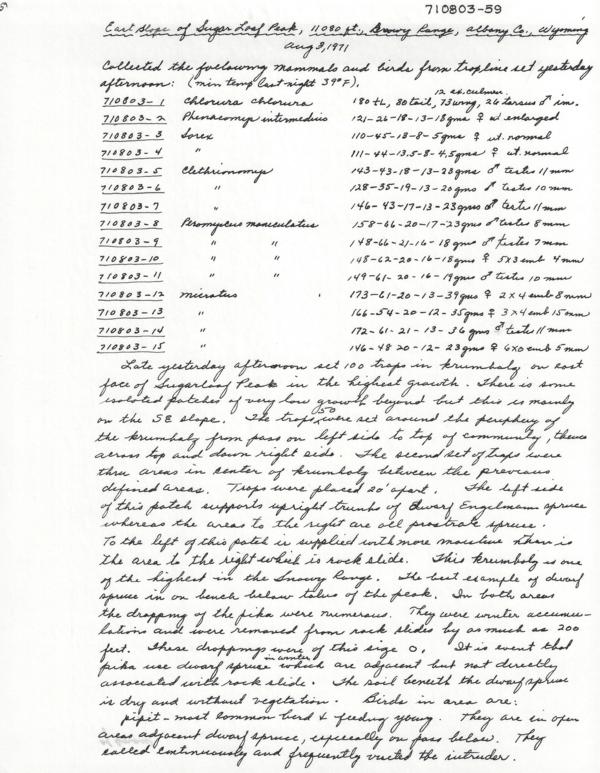 710803-59
East Slope of Sugar Loaf Peak, 11080 ft., Snowy Range, Albany Co., Wyoming
Aug 3, 1971
Collected the following mammals and birds from trapline set yesterday
afternoon: (min temp last night 39°F).
710803-1 Chlorura chlorura 180 tL, 80 tail, 73 wng, 26 tarsus ♂ im.
710803-2 Phenacomys intermedius 121-26-18-13-18gms ♀ ut enlarged
710803-3 Sorex 110-45-13-8-5gms ♀ ut. normal
710803-4 " 111-44-13.5-8-4.5gms ♀ ut. normal
710803-5 Clethrionomys 143-43-18-13-23gms ♂ testes 11mm
710803-6 " 128-35-19-13-20gms ♂ testes 10mm
710803-7 " 146-43-17-13-23gms ♂ testes 11mm
710803-8 Peromyscus maniculatus 158-66-20-17-23gms ♂ testes 8mm
710803-9 " " 148-66-21-16-18gms ♂ testes 7mm
710803-10 " " 148-62-20-16-18gms ♀ 5x3 emb 4mm
710803-11 " " 149-61-20-16-19gms ♂ testes 10mm
710803-12 Microtus 173-61-20-13-39gms ♀ 2x4 emb 8mm
710803-13 " 166-54-20-12-35gms ♀ 3x4 emb 15mm
710803-14 " 172-61-21-13-36gms ♂ testes 11mm
710803-15 " 146-48 20-12-23gms ♀ 6x0 emb 5mm
Late yesterday afternoon set 100 traps in krumholz on east
face of Sugarloaf Peak in the highest growth. There is some
isolated patches of very low growth beyond but this is mainly
on the SE slope. The traps 50 were set around the periphery of
the krumholz from pass on left side to top of community, thence
across top and down right side. The second set of traps were
thru areas in center of krumholz between the previous
defined areas. Traps were placed 20' apart. The left side
of this patch supports upright trunks of dwarf Engelmann spruce
whereas the areas to the right are all prostrate spruce.
To the left of this patch is supplied with more moisture than is
the area to the right which is rock slide. This krumholz is one
of the highest in the Snowy Range. The best example of dwarf
spruce is on bench below talus of the peak. In both areas
the dropping of the pika were numerous. They were winter accumu-
lations and were removed from rock slides by as much as 200
feet. These droppings were of this size O. It is event that
pika use dwarf spruce in winter which are adjacent but not directly
associated with rock slide. The soil beneath the dwarf spruce
is dry and without vegetation. Birds in area are:
pipit - most common bird & feeding young. They are in open
areas adjacent dwarf spruce, especially on pass below. They
called continuously and frequently visited the intruder.